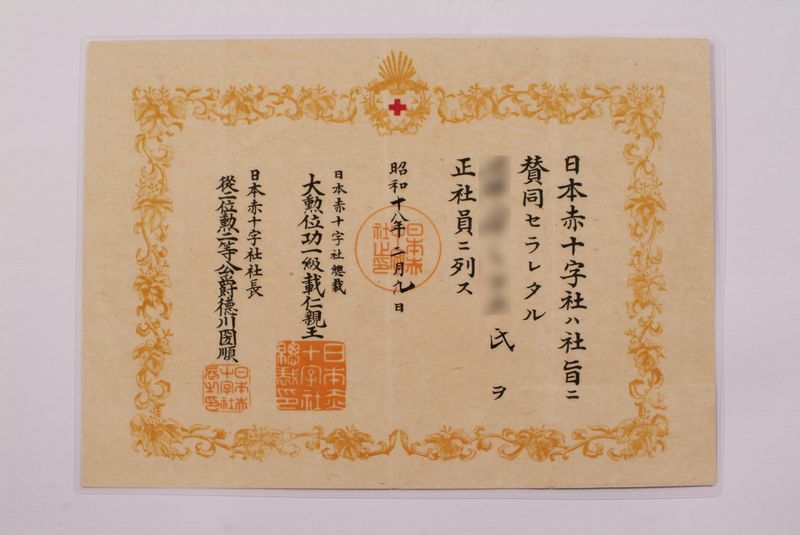 日本赤十字社ハ社旨ニ
賛同セラレタル
氏ヲ
正社員ニ列ス
昭和十八年二月九日
日本赤十字社總裁
大勲位功一級載仁親王
日本赤十字社社長
從二位勲二等公爵德川圀順
日本赤
十字社
總裁印
日本赤
十字社
長之印
日本赤
社之印